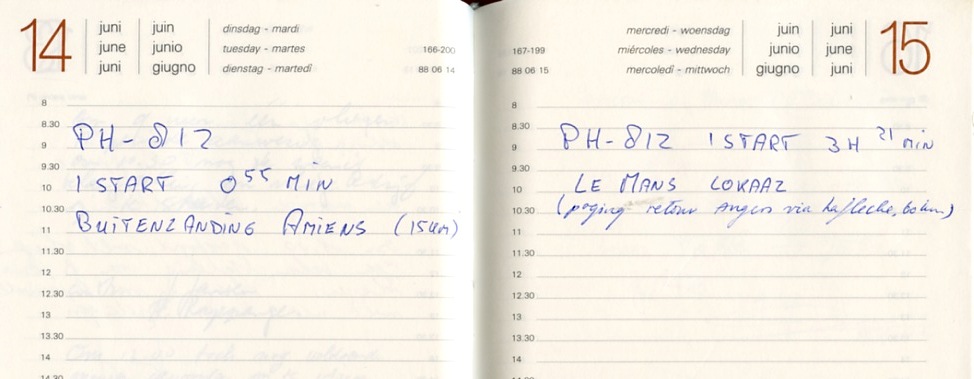 14 juni juin dinsdag - mardi
june junio tuesday - martes 166-200
juni giugno dienstag - martedî 88 06 14
8
8.30
9 PH-812
9.30
10 1 START 0⁵⁵ MIN
10.30
11 BUITENLANDING AMIENS (15km)
11.30
12
12.30
13
13.30
14
14.30
mercredi - woensdag juin juni 15
167-199 miércoles - wednesday junio june
88 06 15 mercoledî - mittwoch giugno juni
8
8.30
9 PH-812 1 START 3H ²¹ min
9.30
10 LE MANS LOKAAL
10.30 (poging retour Angers via La fleche,
11
11.30
12
12.30
13
13.30
14